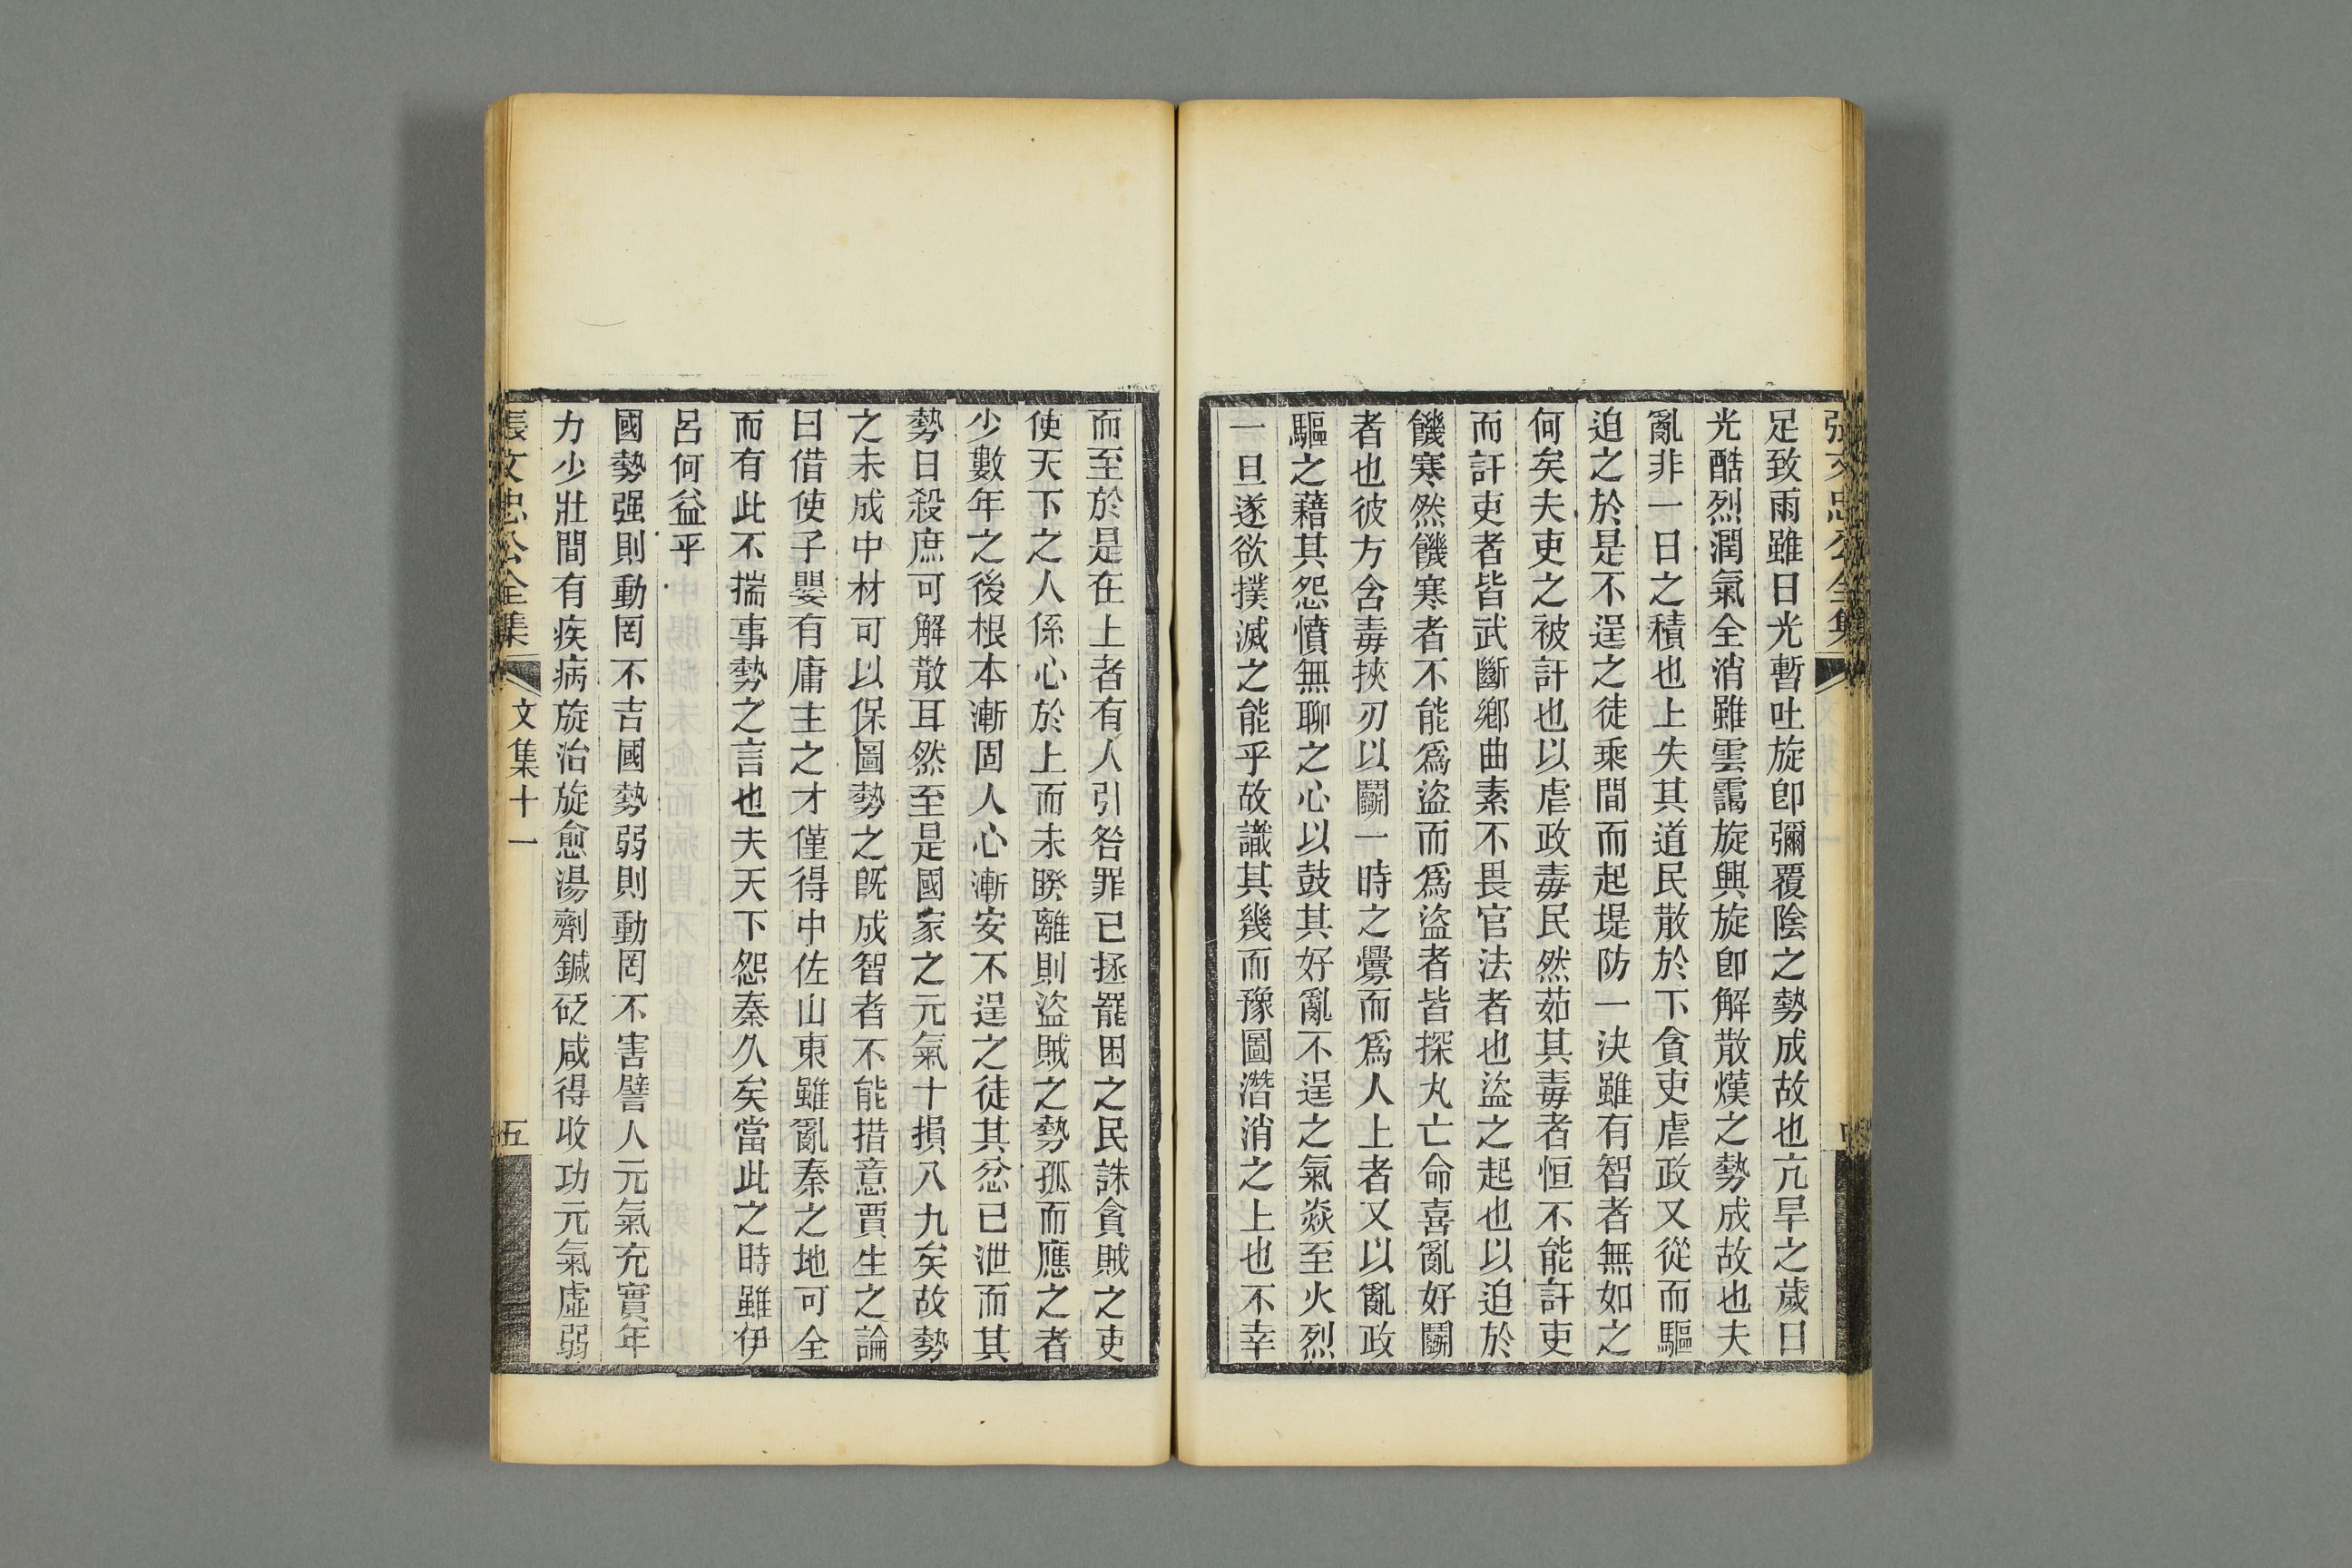 張文忠公全集
足致雨雖日光暫吐旋卽彌覆陰之勢成故也亢旱之歲日
光酷烈潤氣全消雖雲靄旋興旋卽解散熯之勢成故也夫
亂非一日之積也上失其道民散於下貪吏虐政又從而驅
迫之於是不逞之徒乘間而起堤防一決雖有智者無如之
何矣夫吏之被訐也以虐政毒民然茹其毒者恒不能訐吏
而訐吏者皆武斷鄉曲素不畏官法者也盜之起也以迫於
饑寒然饑寒者不能爲盜而爲盜者皆探丸亡命喜亂好鬭
者也彼方含毒挾刃以鬭一時之釁而爲人上者又以亂政
驅之藉其怨憤無聊之心以鼓其好亂不逞之氣焱至火烈
一旦遂欲撲滅之能乎故識其幾而豫圖潛消之上也不幸
而至於是在上者有人引咎罪已拯罷困之民誅貪賊之吏
使天下之人係心於上而未暌離則盜賊之勢孤而應之者
少數年之後根本漸固人心漸安不逞之徒其忿已泄而其
勢日殺庶可解散耳然至是國家之元氣十損八九矣故勢
之未成中材可以保圖勢之旣成智者不能措意賈生之論
曰借使子嬰有庸主之才僅得中佐山東雖亂秦之地可全
而有此不揣事勢之言也夫天下怨秦久矣當此之時雖伊
呂何益乎
國勢强則動罔不吉國勢弱則動罔不害譬人元氣充實年
力少壯間有疾病旋治旋愈湯劑鍼砭咸得收功元氣虛弱
張文忠公全集 文集十一 五